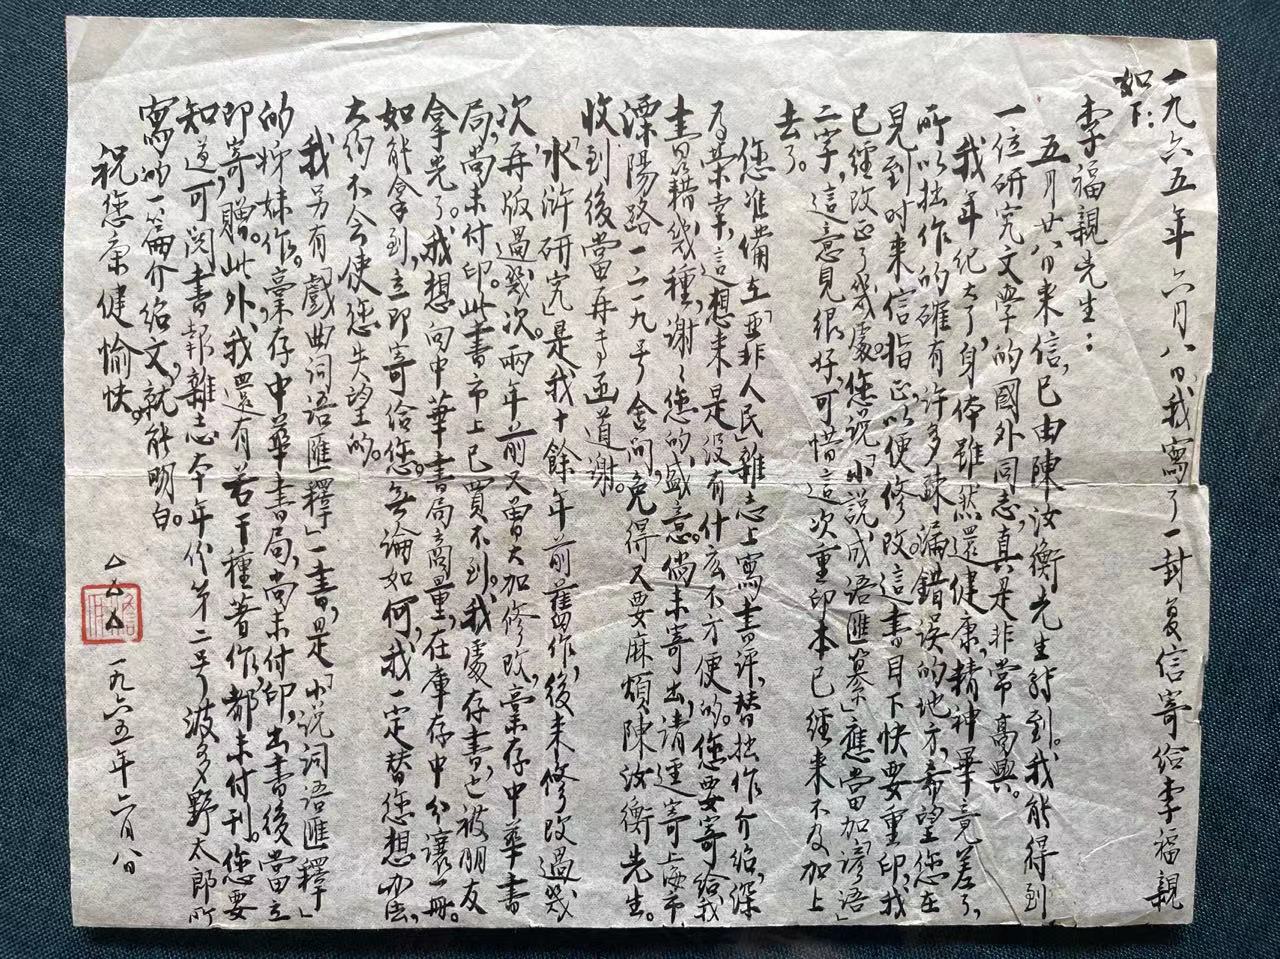 一九六五年六月八日，我寫了一封复信寄給李福親
如下：
李福親先生：
五月廿八日来信，已由陳汝衡先生轉到。我能得到
一位研究文學的國外同志，真是非常高興。
我年纪大了，身体雖然還健康，精神畢竟差了，
所以拙作的確有许多疎漏錯误的地方，希望您在
見到时来信指正，以便修改。這書目下快要重印，我
已經改正了幾處。您说「小說成语匯纂」應當加「謬语」
二字，這意見很好，可惜這次重印本已經来不及加上
去了。
您准備在「亞非人民」雜志上寫書评，替拙作介绍，深
为荣幸，這想来是没有什么不方便的。您要寄给我
書籍幾種，謝謝您的盛意。倘未寄出，请逕寄上海市
溧陽路一二一九号舍间，免得又要麻煩陳汝衡先生。
收到後當再专函道謝。
「水浒研究」是我十餘年前舊作，後来修改過幾
次，再版過幾次。兩年前又曾大加修改，稾存中華書
局，尚未付印。此書市上已買不到，我處存書，已被朋友
拿光了。我想向中華書局商量，在庫存中分讓一冊。
如能拿到，立即寄给您。無論如何，我一定替您想办法，
大约不会使您失望的。
我另有「戲曲词语匯釋」一書，是「小说词语匯釋」
的姊妹作。稾存中華書局，尚未付印，出書後當立
即寄贈。此外，我還有若干種著作，都未付刊。您要
知道可阅書報雜志本年份第二号波多野太郎所
寫的一篇介给文，就能明白。
祝您康健愉快。
△△△ 一九六五年六月八日